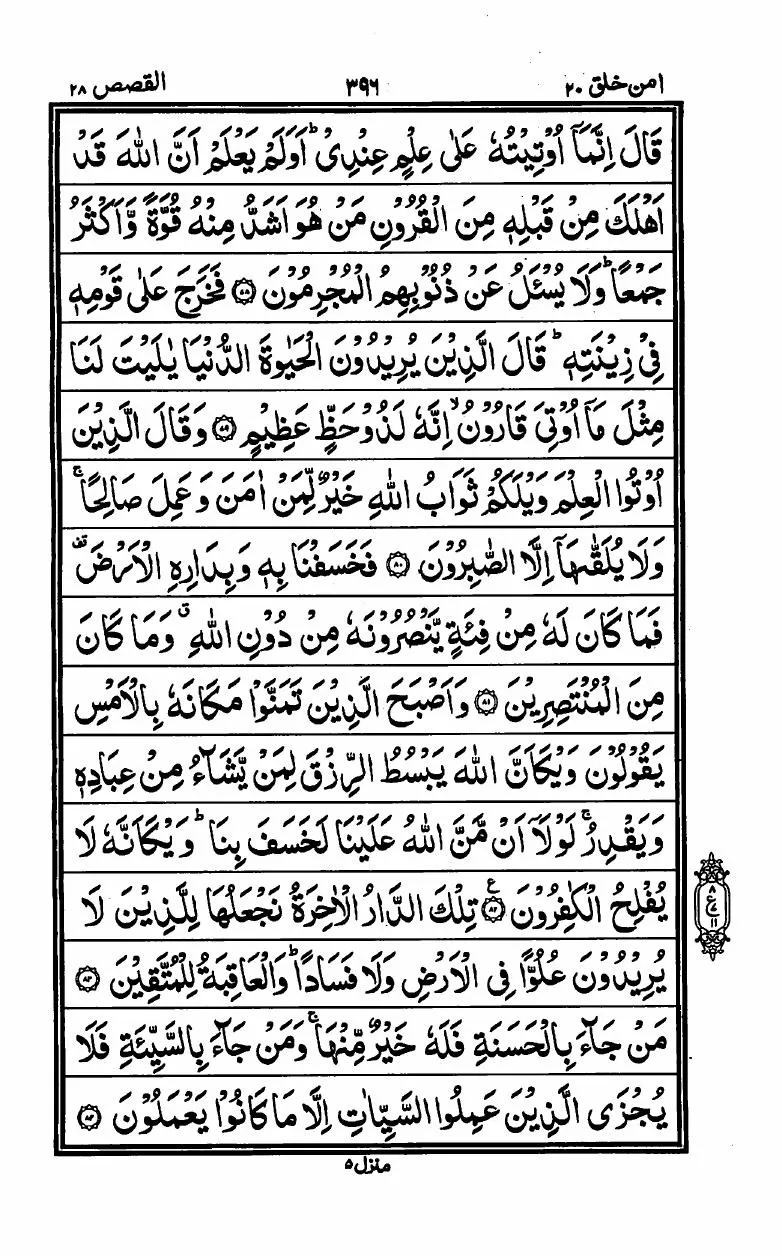 امن خلق ٢٠
٣٩٦
القصص ٢٨
قَالَ اِنَّمَاۤ اُوْتِيْتُهٗ عَلٰى عِلْمٍ عِنْدِىْ ؕ اَوَلَمْ يَعْلَمْ اَنَّ اللّٰهَ قَدْ
اَهْلَكَ مِنْ قَبْلِهٖ مِنَ الْقُرُوْنِ مَنْ هُوَ اَشَدُّ مِنْهُ قُوَّةً وَّاَكْثَرُ
جَمْعًا ؕ وَلَا يُسْـَٔلُ عَنْ ذُنُوْبِهِمُ الْمُجْرِمُوْنَ ﴿٧٨﴾ فَخَرَجَ عَلٰى قَوْمِهٖ
فِىْ زِيْنَتِهٖ ؕ قَالَ الَّذِيْنَ يُرِيْدُوْنَ الْحَيٰوةَ الدُّنْيَا يٰلَيْتَ لَنَا
مِثْلَ مَاۤ اُوْتِىَ قَارُوْنُ ۙ اِنَّهٗ لَذُوْ حَظٍّ عَظِيْمٍ ﴿٧٩﴾ وَقَالَ الَّذِيْنَ
اُوْتُوا الْعِلْمَ وَيْلَكُمْ ثَوَابُ اللّٰهِ خَيْرٌ لِّمَنْ اٰمَنَ وَعَمِلَ صَالِحًا ۚ
وَلَا يُلَقّٰىهَاۤ اِلَّا الصّٰبِرُوْنَ ﴿٨٠﴾ فَخَسَفْنَا بِهٖ وَبِدَارِهِ الْاَرْضَ ۟
فَمَا كَانَ لَهٗ مِنْ فِئَةٍ يَّنْصُرُوْنَهٗ مِنْ دُوْنِ اللّٰهِ ۗ وَمَا كَانَ
مِنَ الْمُنْتَصِرِيْنَ ﴿٨١﴾ وَاَصْبَحَ الَّذِيْنَ تَمَنَّوْا مَكَانَهٗ بِالْاَمْسِ
يَقُوْلُوْنَ وَيْكَاَنَّ اللّٰهَ يَبْسُطُ الرِّزْقَ لِمَنْ يَّشَآءُ مِنْ عِبَادِهٖ
وَيَقْدِرُ ۚ لَوْلَاۤ اَنْ مَّنَّ اللّٰهُ عَلَيْنَا لَخَسَفَ بِنَا ؕ وَيْكَاَنَّهٗ لَا
يُفْلِحُ الْكٰفِرُوْنَ ﴿٨٢﴾ ع تِلْكَ الدَّارُ الْاٰخِرَةُ نَجْعَلُهَا لِلَّذِيْنَ لَا
يُرِيْدُوْنَ عُلُوًّا فِى الْاَرْضِ وَلَا فَسَادًا ؕ وَالْعَاقِبَةُ لِلْمُتَّقِيْنَ ﴿٨٣﴾
مَنْ جَآءَ بِالْحَسَنَةِ فَلَهٗ خَيْرٌ مِّنْهَا ۚ وَمَنْ جَآءَ بِالسَّيِّئَةِ فَلَا
يُجْزَى الَّذِيْنَ عَمِلُوا السَّيِّاٰتِ اِلَّا مَا كَانُوْا يَعْمَلُوْنَ ﴿٨٤﴾
٨
ع ٧
١١
منزل ٥